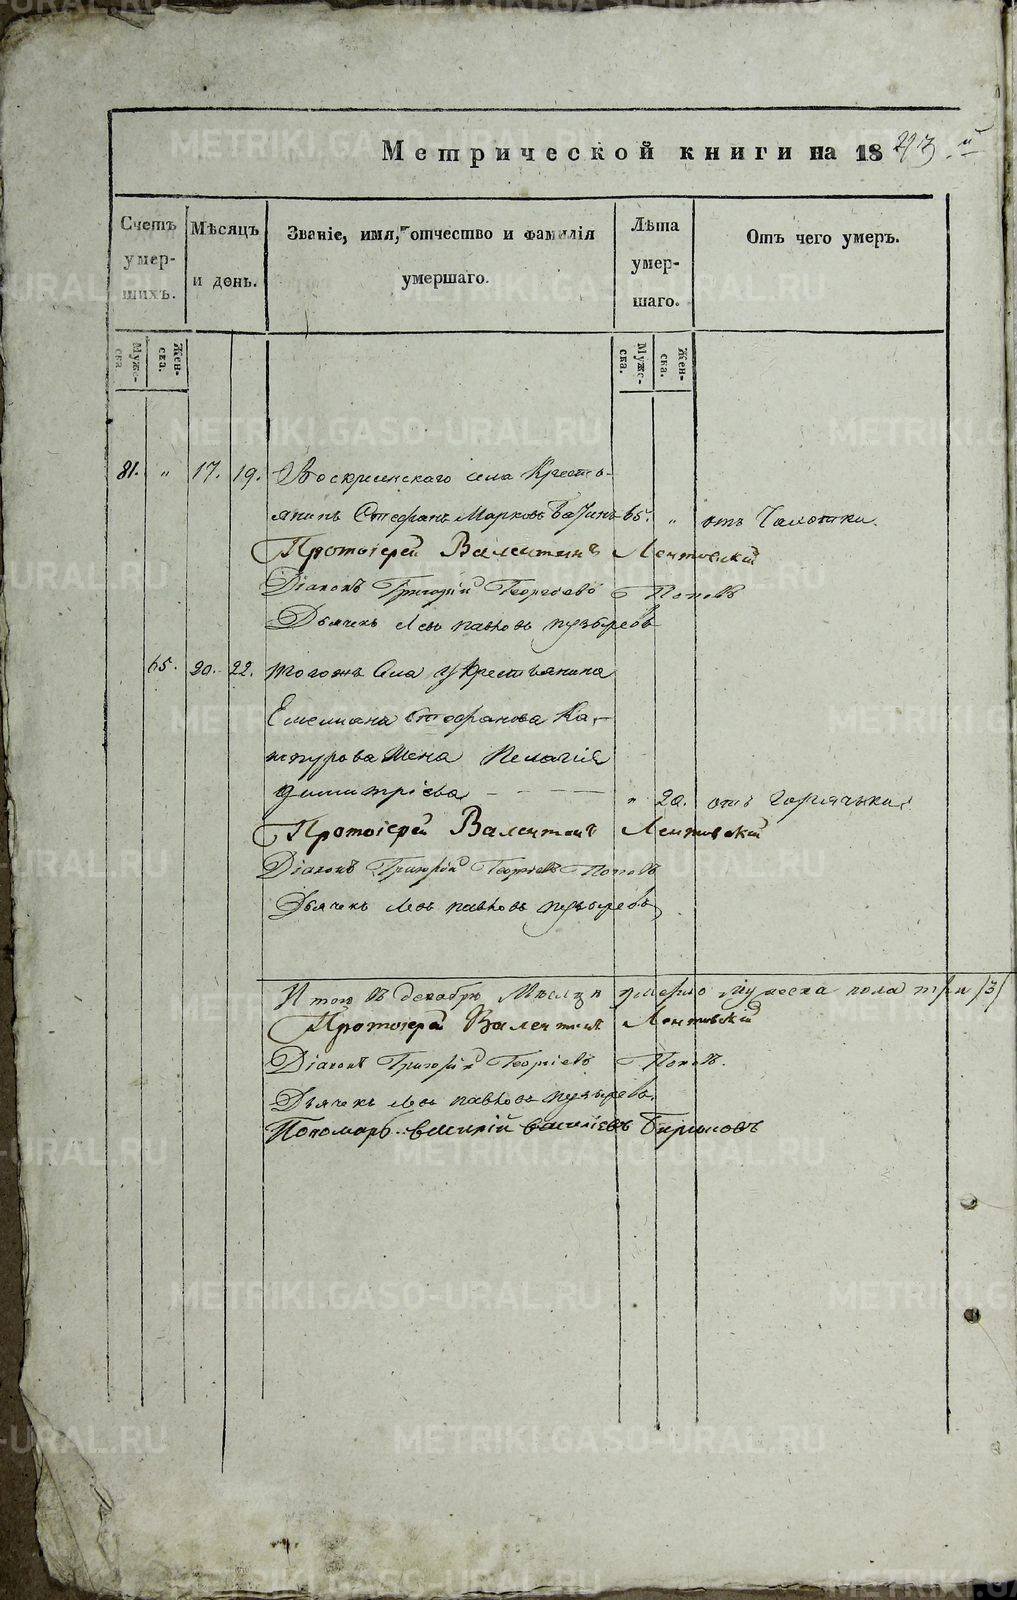 Метрической книги на 18
Счетъ умер-шихъ.
Мѣсяцъ и день.
Званіе, имя, отчество и фамилія умершаго.
Лѣта умер-шаго.
Отъ чего умеръ.
Муже-ска
Жен-ска.
Муже-ска.
Жен-ска.
81. „ 17. 19. Воскресенскаго села Кресть-
янинъ Стефанъ Марковъ 65. „ отъ Чахотки.
Протоіерей Валентинъ Лентовскій
Діаконъ Григорій Георгіевъ Поповъ
Дьячекъ Левъ Павловъ Пузыревъ
65. 20. 22. тогожъ Села у Крестьянина
Емелиана Стефанова Ка-
жена Пелагія
Димитріева — — — „ 20. отъ горячьки.
Протоіерей Валентинъ Лентовскій
Діаконъ Григорій Георгіевъ Поповъ
Дьячекъ Левъ Павловъ Пузыревъ
Итого въ декабрѣ Мѣсяцѣ умерло мужеска пола три /3/
Протоіерей Валентинъ Лентовскій
Діаконъ Григорій Георгіевъ Поповъ.
Дьячекъ Левъ Павловъ Пузыревъ.
Пономарь Василій Василіевъ
METRIKI.GASO-URAL.RU